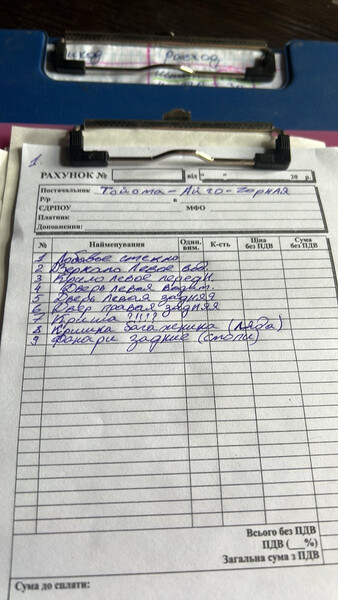 Розход
1.
РАХУНОК № від "__" 20 р.
Постачальник Тойота-Айго-Чорная
Р/р в
ЄДРПОУ МФО
Платник
Доповнення:
№ Найменування Один. вим. К-сть Ціна без ПДВ Сума без ПДВ
1 Лобовое стекло
2 Зеркало левое вод.
3 Крило левое передн.
4 Дверь левая водит.
5 Дверь левая задняя
6 Двер правая задняя
7 Криша !!!!
8 Кришка багажника (ляда)
9 Фанари задние (стопи)
Всього без ПДВ
ПДВ (__%)
Загальна сума з ПДВ
Сума до сплати: